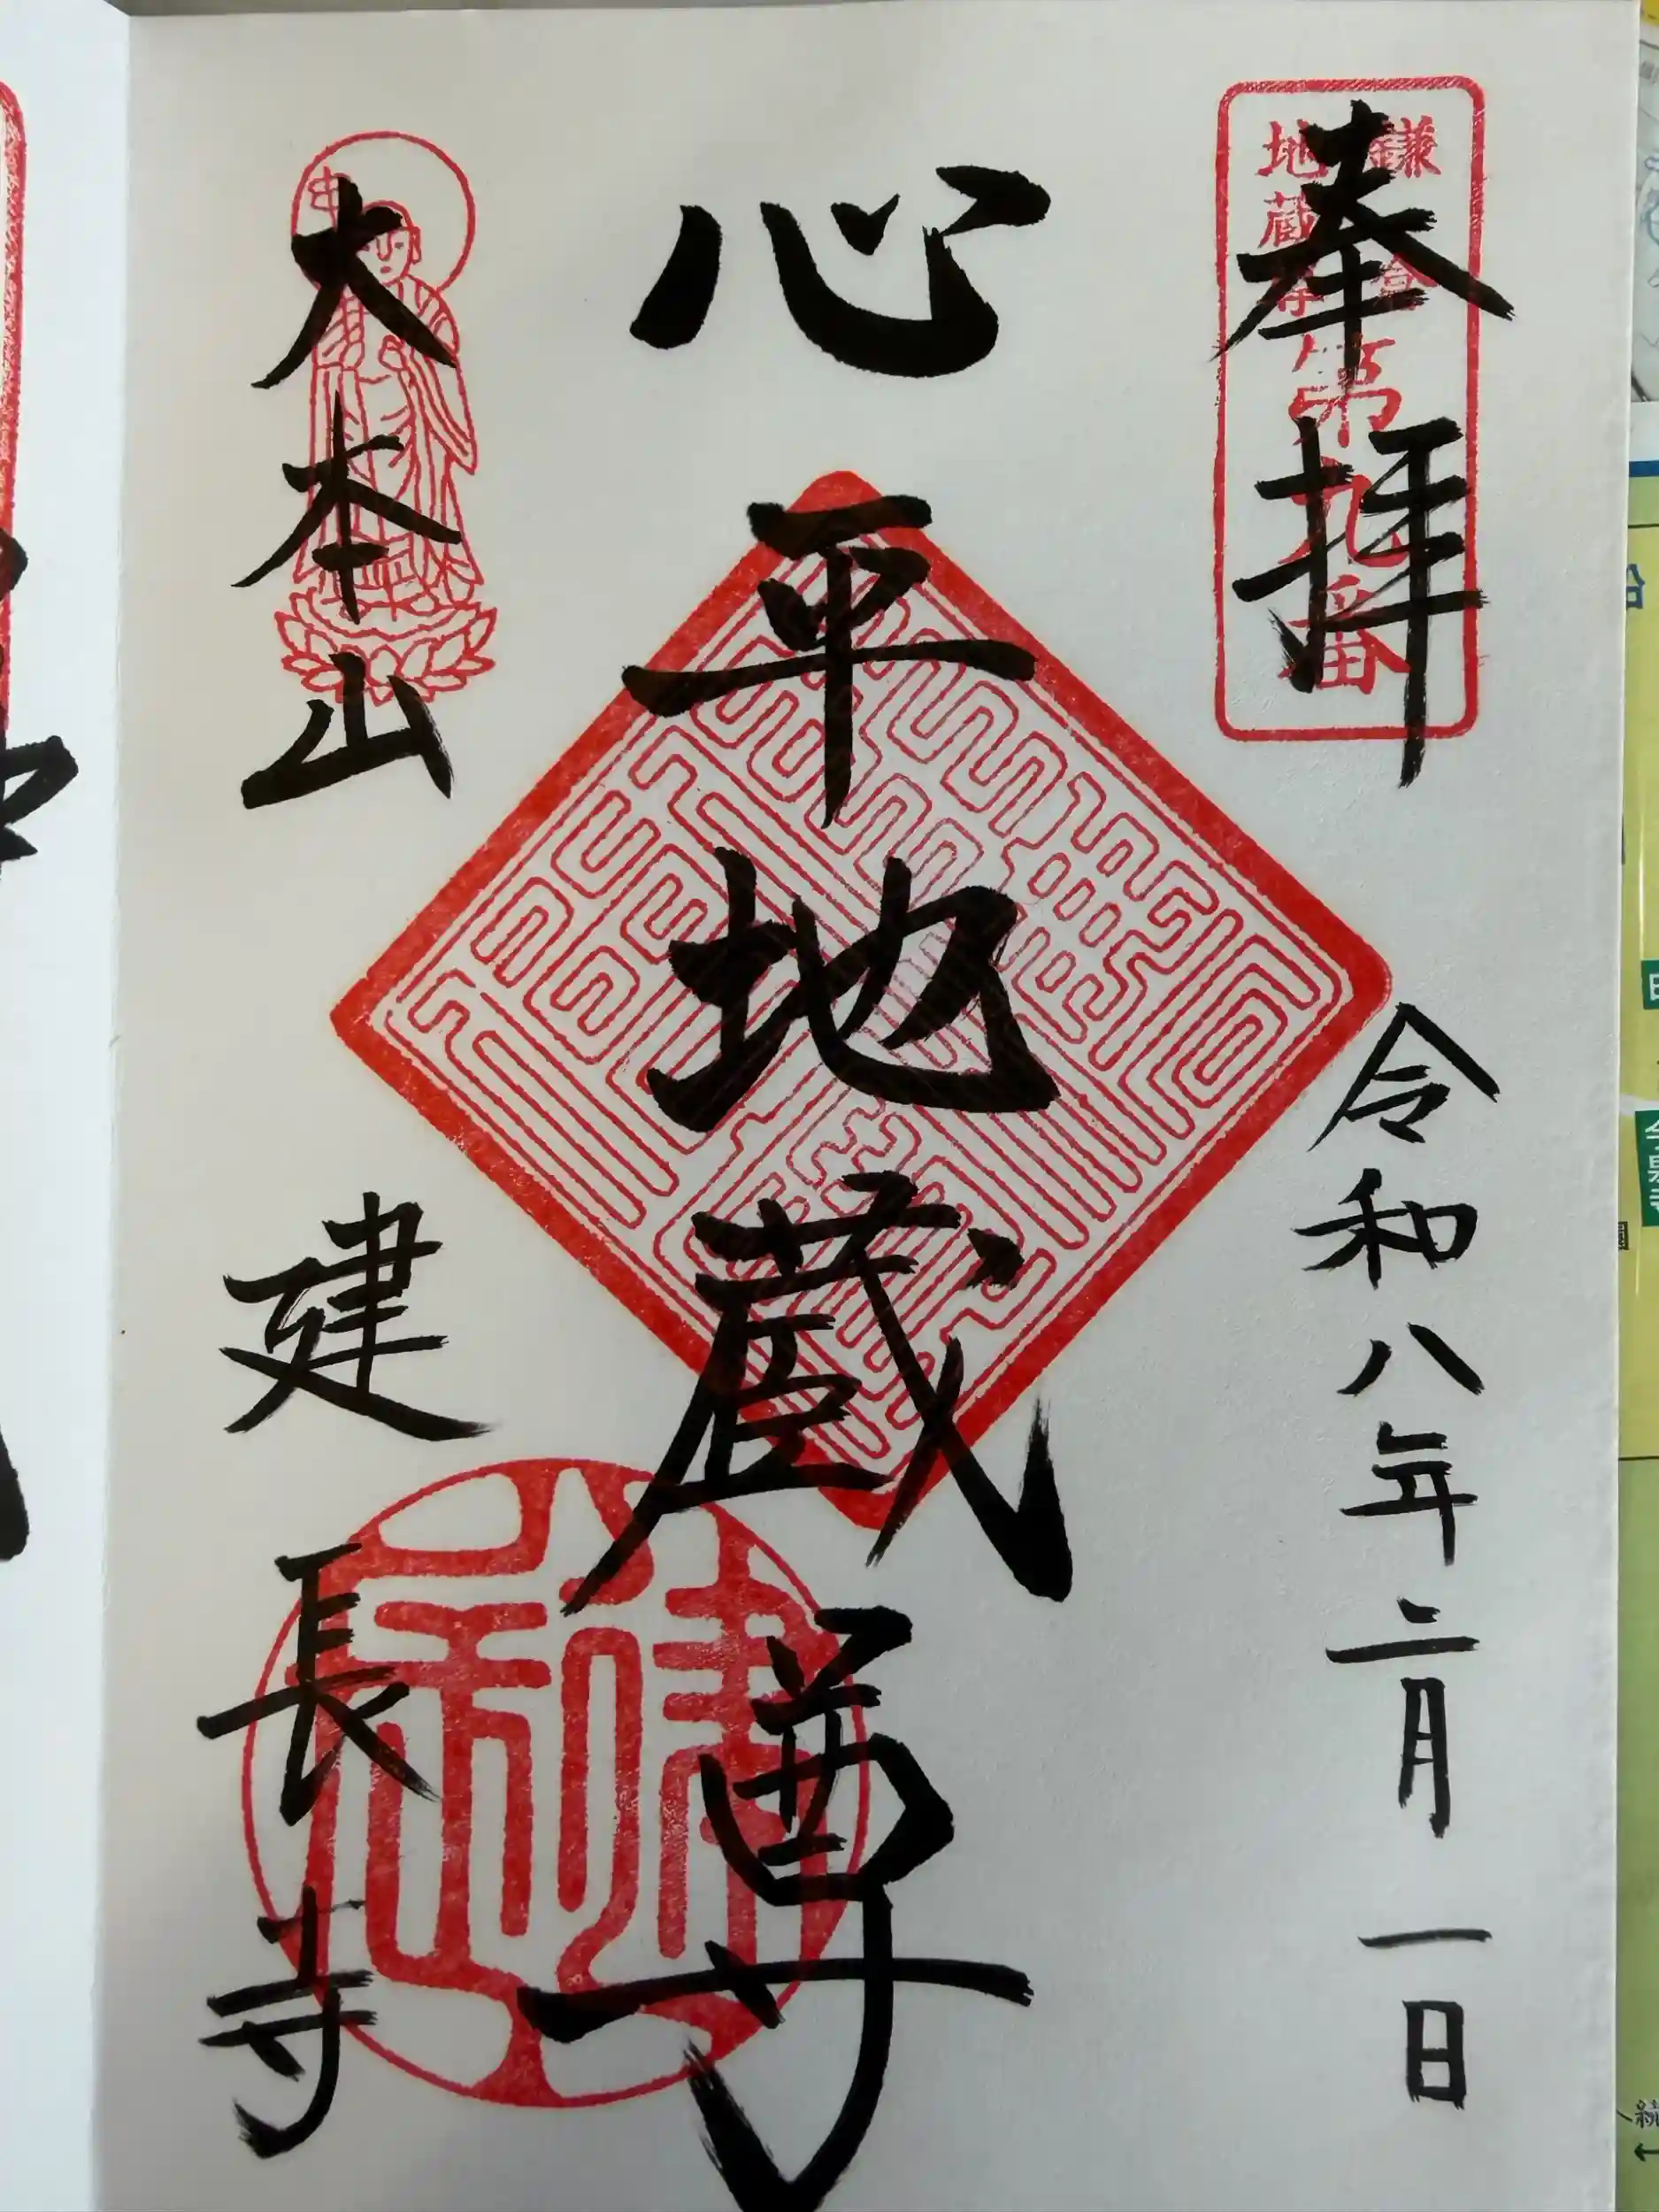 奉拝
鎌倉
地蔵尊
第九番
令和八年二月一日
心平地蔵尊
大本山
建長寺